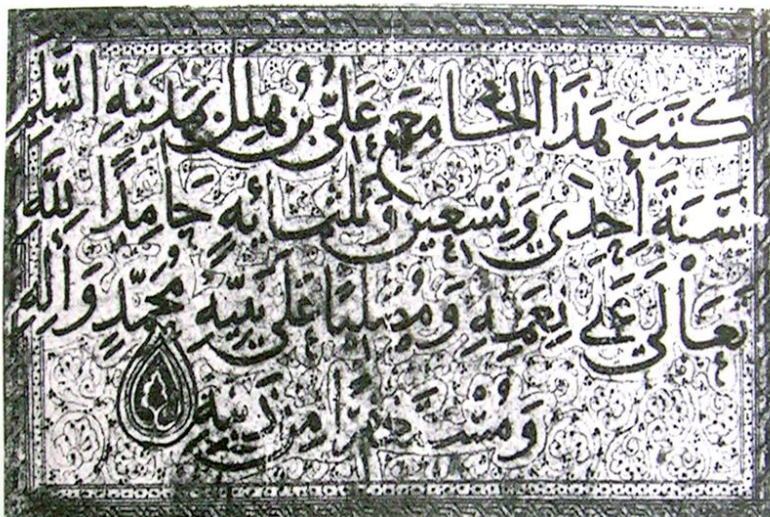 كَتَبَ هَذَا الجَامِعَ عَلِيُّ بنُ هِلَلٍ بِمَدِينَةِ السَّلَمِ
سَنَةَ إِحْدَي وَتِسْعِينَ وَثَلَثَمِائَةٍ حَامِدًا لِلَّهِ
تَعَالَى عَلَى نِعَمِهِ وَمُصَلِّيًا عَلَى نَبِيِّهِ مُحَمَّدٍ وَآلِهِ
وَمُسْتَغْفِرًا مِن ذَنْبِهِ